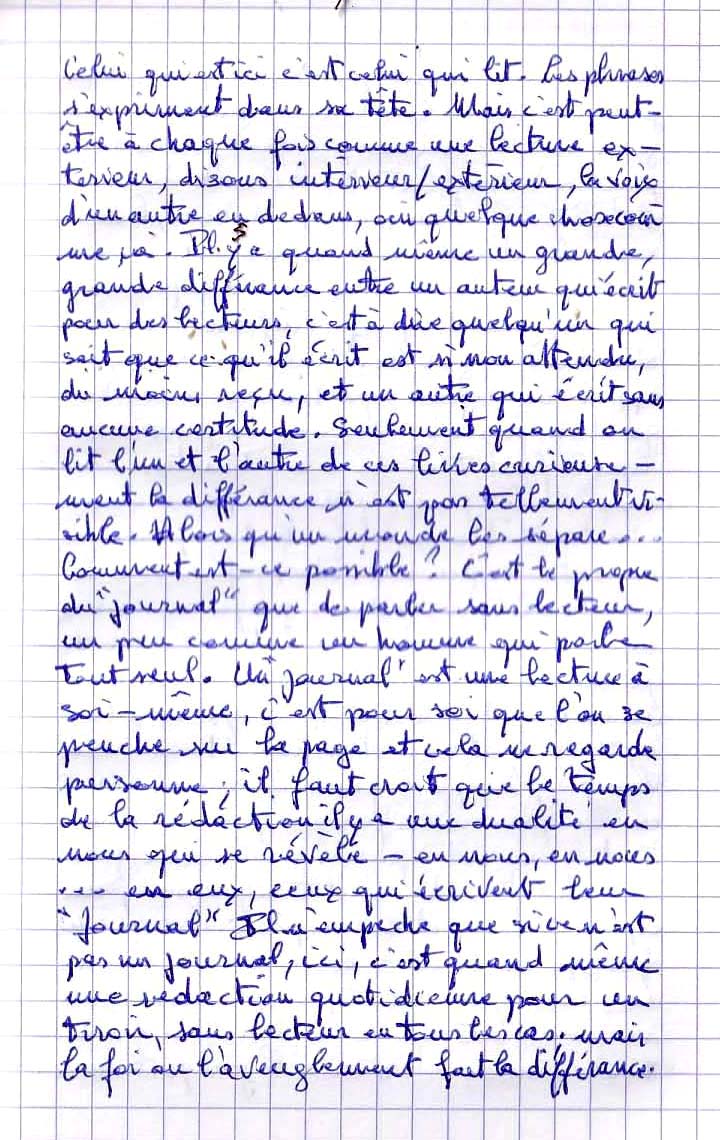 Celui qui est ici c'est celui qui lit. Les phrases
s'expriment dans sa tête. Mais c'est peut-
être à chaque fois comme une lecture ex-
terieur, disons intérieur/extérieur, la voix
d'un autre en dedans, ou quelque chose com
me ça. Il y a quand même un grande,
grande différance entre un auteur qui écrit
pour des lecteurs, c'est à dire quelqu'un qui
sait que ce qu'il écrit est sinon attendu,
du moins reçu, et un autre qui écrit sans
aucune certitude. Seulement quand on
lit l'un et l'autre de ces livres curieuse-
ment la différance n'est pas tellement vi-
sible. Alors qu'un monde les sépare...
Comment est-ce possible ? C'est le propre
du "journal" que de parler sans lecteur,
un peu comme un homme qui parle
tout seul. Un "journal" est une lecture à
soi-même, c'est pour soi que l'on se
penche sur la page et cela ne regarde
personne ; il faut croit que le temps
de la rédaction il y a une dualité en
nous qui se révèle - en nous, en nous
... en eux, ceux qui écrivent leur
"Journal" Il n'empeche que si ce n'est
pas un journal, ici, c'est quand même
une rédaction quotidienne pour un
tiroir, sans lecteur en tous les cas. mais
la foi ou l'aveuglement fait la différance.